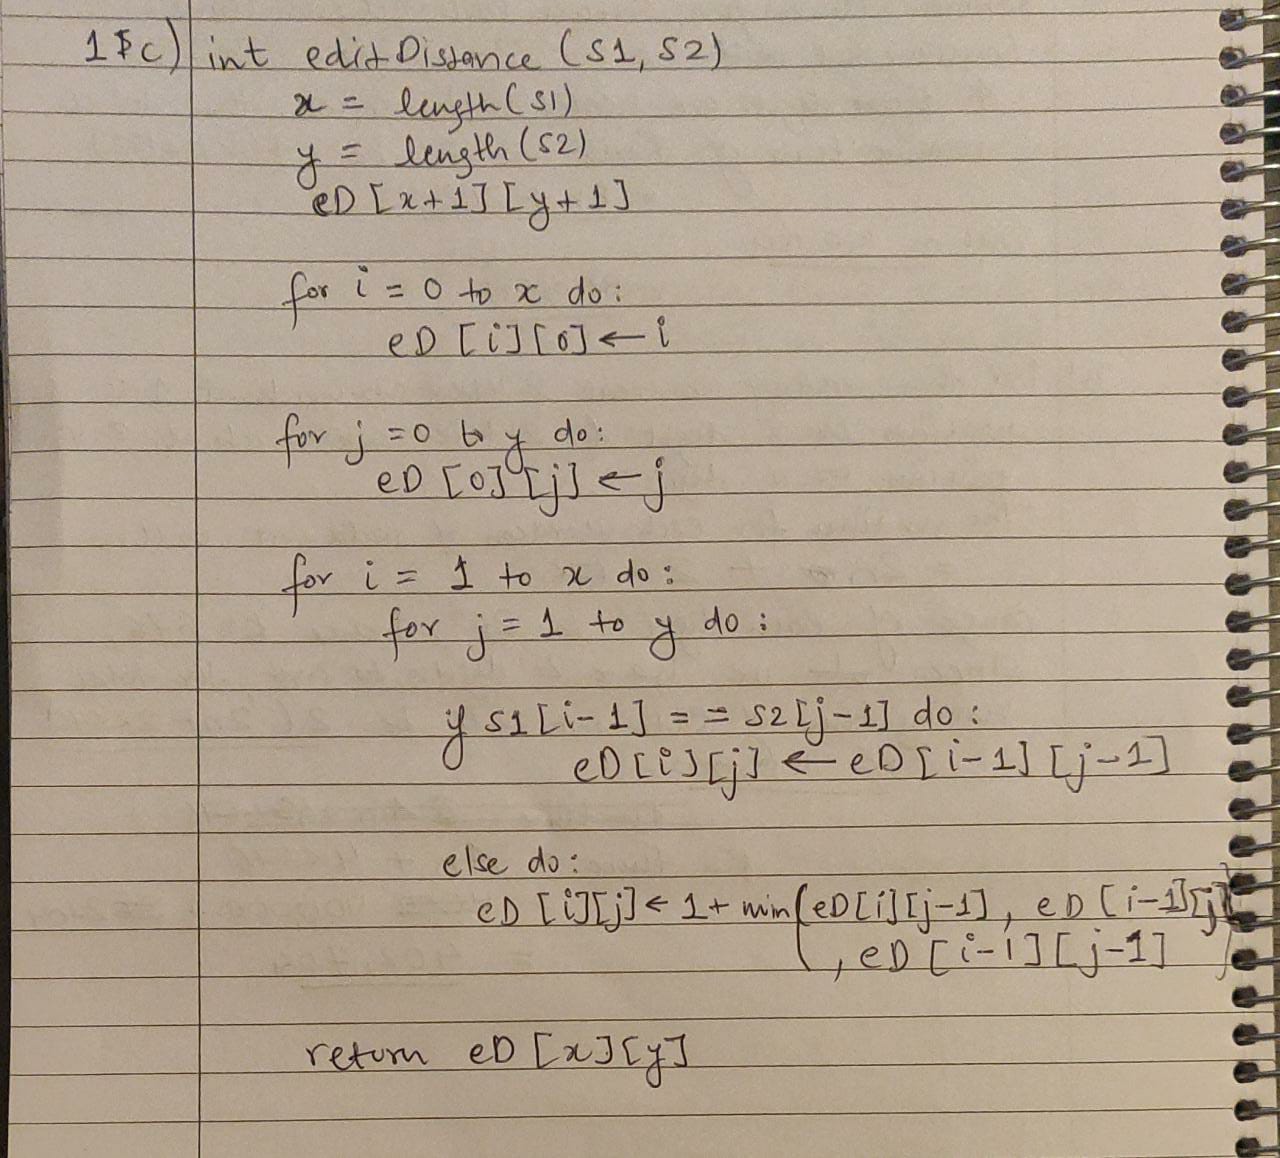 1 c) int editDistance (S1, S2)
x = length(S1)
y = length(S2)
eD [x+1] [y+1]
for i = 0 to x do:
eD [i][0] ← i
for j = 0 to y do:
eD [0][j] ← j
for i = 1 to x do:
for j = 1 to y do:
if S1[i-1] == S2[j-1] do:
eD[i][j] ← eD[i-1][j-1]
else do:
eD [i][j] ← 1 + min(eD[i][j-1], eD[i-1][j]
, eD[i-1][j-1])
return eD [x][y]